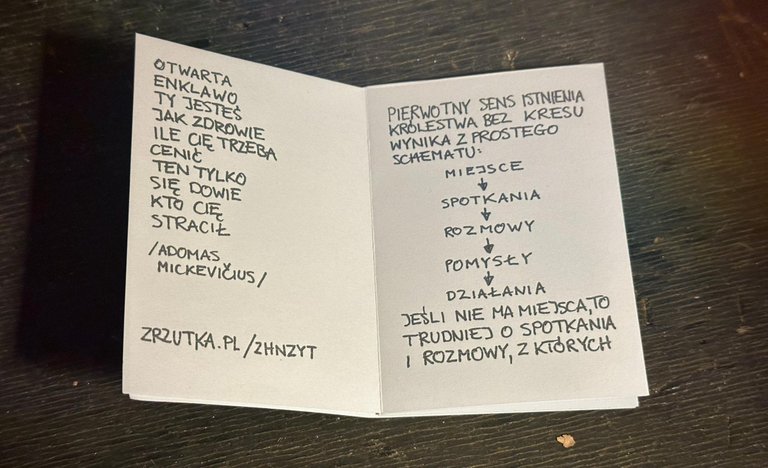 OTWARTA
ENKLAWO
TY JESTEŚ
JAK ZDROWIE
ILE CIĘ TRZEBA
CENIĆ
TEN TYLKO
SIĘ DOWIE
KTO CIĘ
STRACIŁ
/ADOMAS
MICKEVIČIUS/
ZRZUTKA.PL/ZHNZYT
PIERWOTNY SENS ISTNIENIA
KRÓLESTWA BEZ KRESU
WYNIKA Z PROSTEGO
SCHEMATU:
MIEJSCE
↓
SPOTKANIA
↓
ROZMOWY
↓
POMYSŁY
↓
DZIAŁANIA
JEŚLI NIE MA MIEJSCA, TO
TRUDNIEJ O SPOTKANIA
I ROZMOWY, Z KTÓRYCH